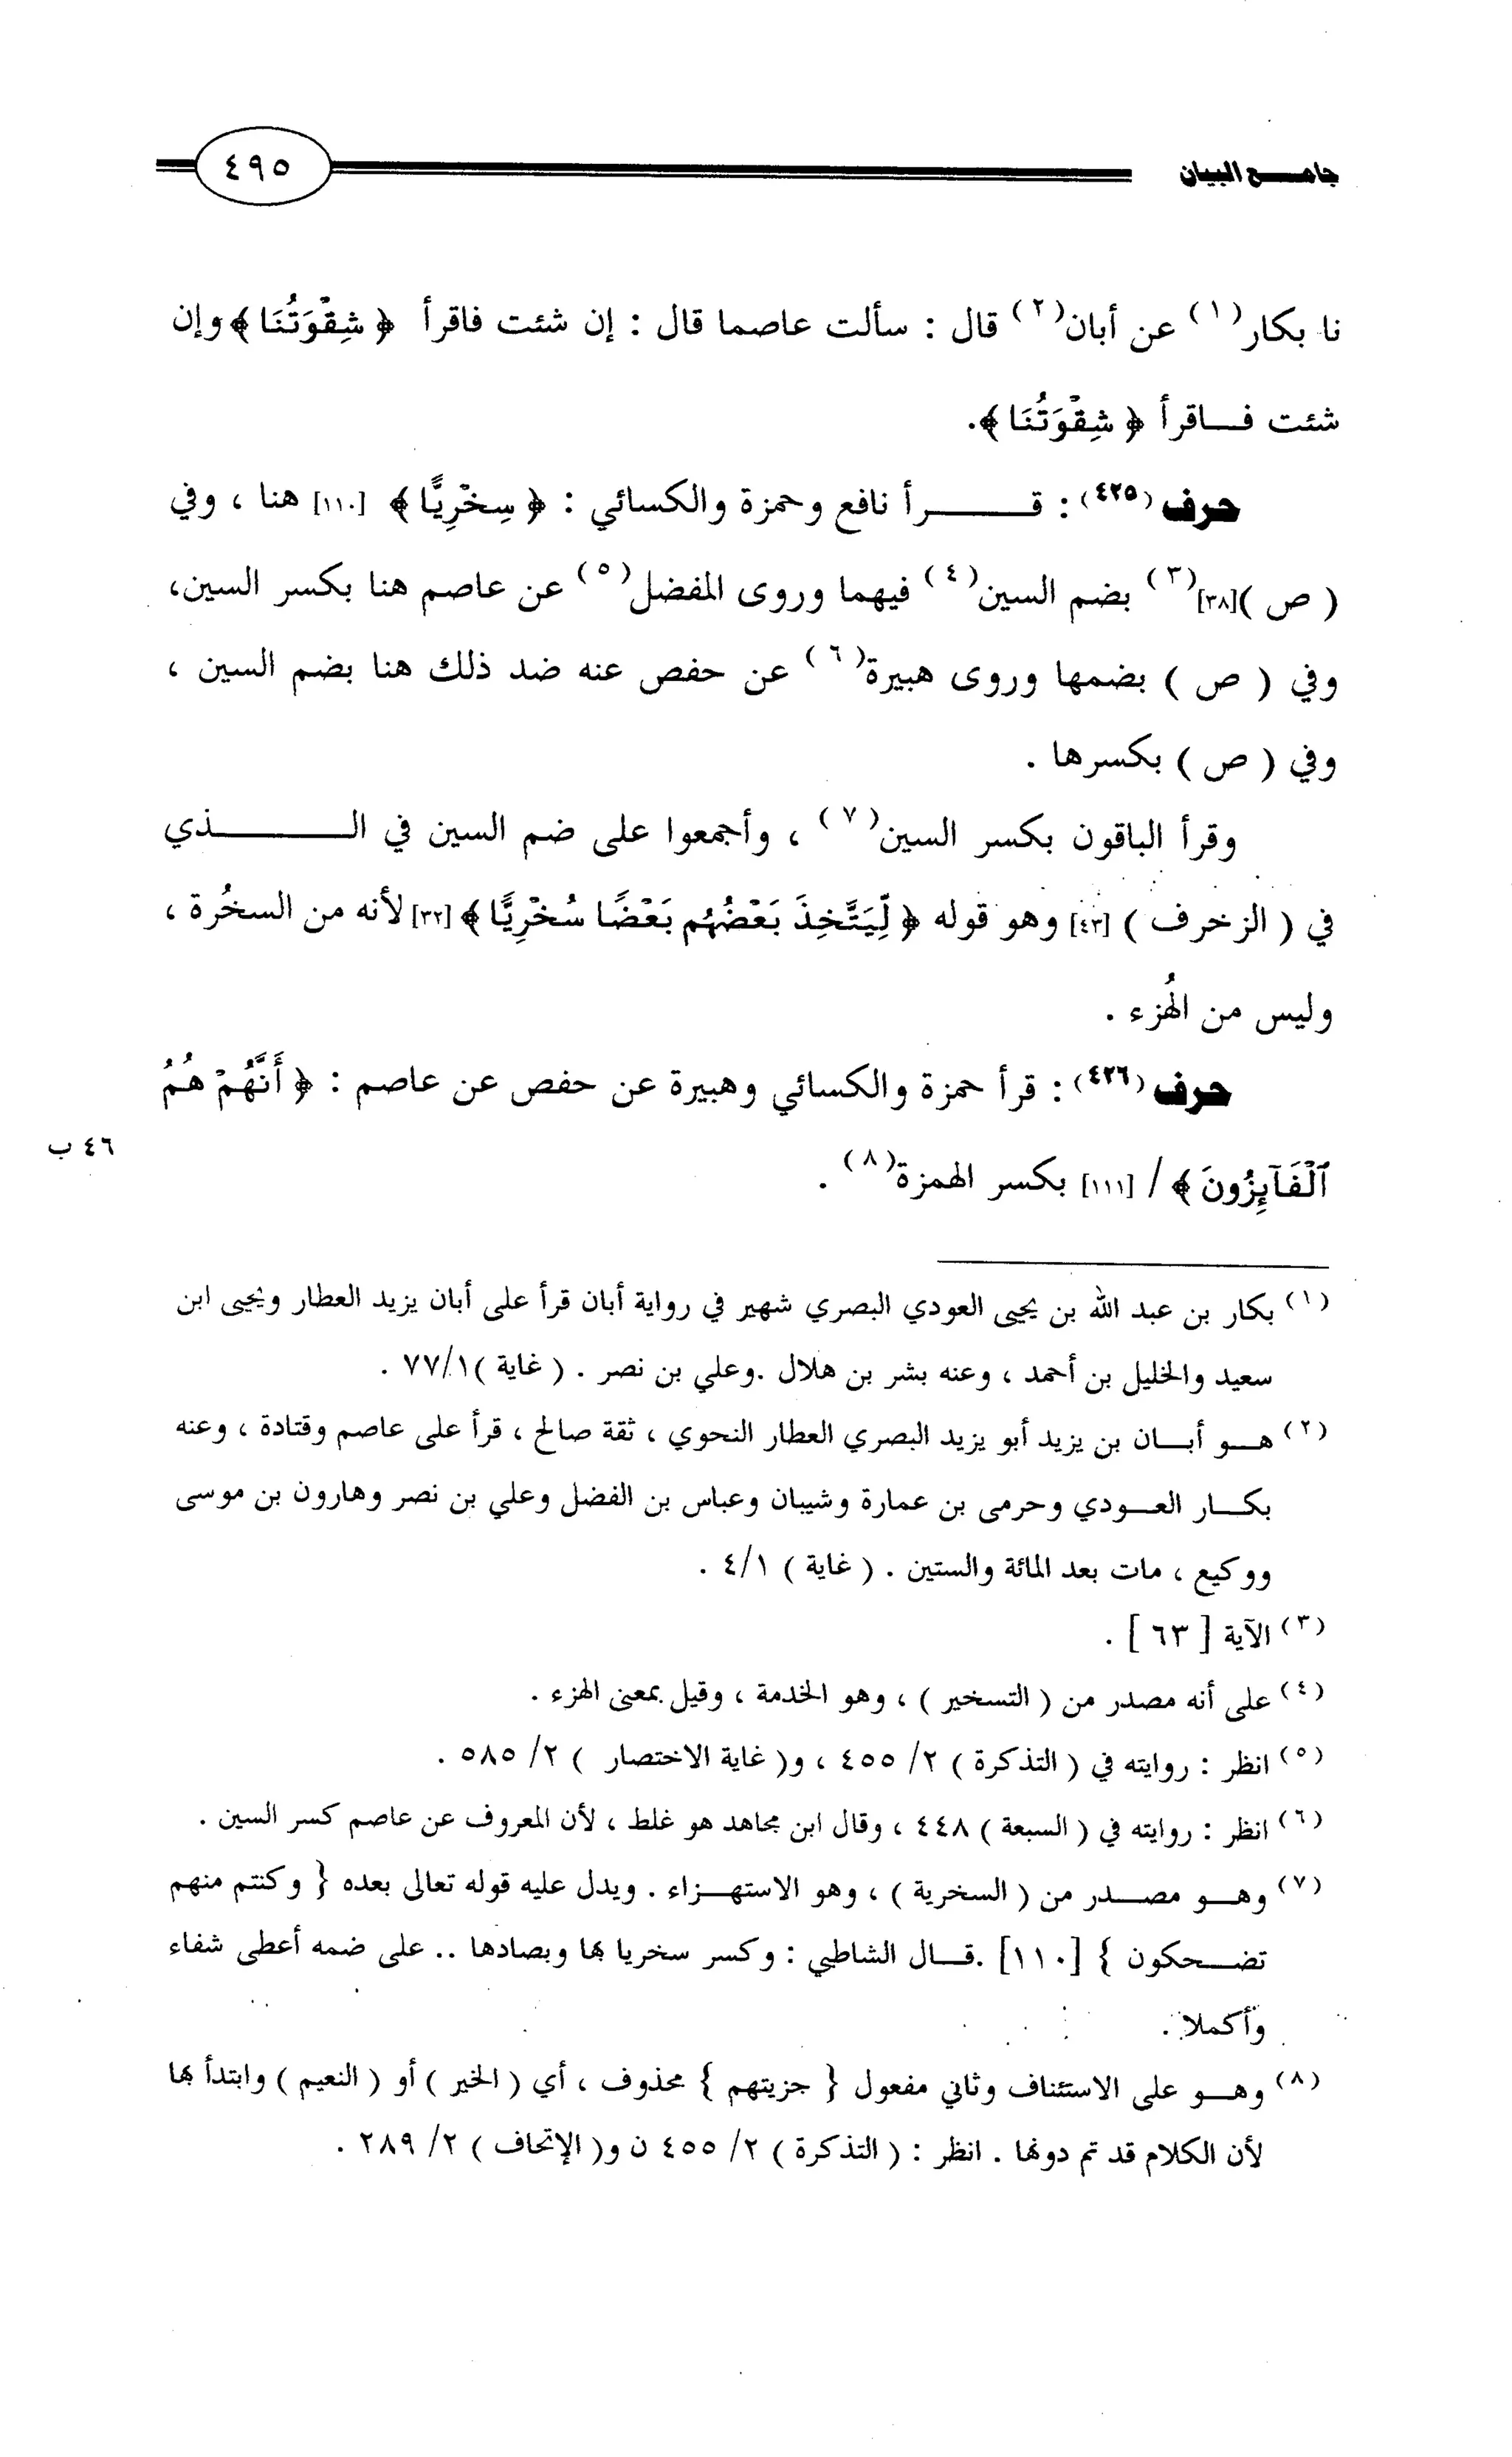 جامع البيان
٤٩٥
نا بكار(١) عن أبان(٢) قال : سألت عاصما قال : إن شئت فاقرأ ﴿ شِقْوَتُنَا ﴾ وإن
شئت فاقرأ ﴿ شِقْوَتُنَا ﴾.
حرف (٤٢٥) : قرأ نافع وحمزة والكسائي : ﴿ سِخْرِيًّا ﴾ [١١٠] هنا ، وفي
( ص )[٣٨](٣) بضم السين(٤) فيهما وروى المفضل(٥) عن عاصم هنا بكسر السين،
وفي ( ص ) بضمها وروى هبيرة(٦) عن حفص عنه ضد ذلك هنا بضم السين ،
وفي ( ص ) بكسرها .
وقرأ الباقون بكسر السين(٧) ، وأجمعوا على ضم السين في الذي
في ( الزخرف ) [٤٣] وهو قوله ﴿ لِّيَتَّخِذَ بَعْضُهُم بَعْضًا سُخْرِيًّا ﴾[٣٢] لأنه من السخُرة ،
وليس من الهُزء .
حرف (٤٢٦) : قرأ حمزة والكسائي وهبيرة عن حفص عن عاصم : ﴿ أَنَّهُمْ هُمُ
٤٦ ب
ٱلْفَآئِزُونَ ﴾ / [١١١] بكسر الهمزة(٨) .
(١) بكار بن عبد الله بن يحيى العودي البصري شهير في رواية أبان قرأ على أبان يزيد العطار ويحيى ابن
سعيد والخليل بن أحمد ، وعنه بشر بن هلال .وعلي بن نصر . ( غاية )٧٧/١ .
(٢) هو أبان بن يزيد أبو يزيد البصري العطار النحوي ، ثقة صالح ، قرأ على عاصم وقتادة ، وعنه
بكار العودي وحرمى بن عمارة وشيبان وعباس بن الفضل وعلي بن نصر وهارون بن موسى
ووكيع ، مات بعد المائة والستين . ( غاية ) ٤/١ .
(٣) الآية [ ٦٣ ] .
(٤) على أنه مصدر من ( التسخير ) ، وهو الخدمة ، وقيل بمعنى الهزء .
(٥) انظر : روايته في ( التذكرة ) ٢/ ٤٥٥ ، و( غاية الاختصار ) ٢/ ٥٨٥ .
(٦) انظر : روايته في ( السبعة ) ٤٤٨ ، وقال ابن مجاهد هو غلط ، لأن المعروف عن عاصم كسر السين .
(٧) وهو مصدر من ( السخرية ) ، وهو الاستهزاء . ويدل عليه قوله تعالى بعده { وكنتم منهم
تضحكون } [١١٠] .قال الشاطبي : وكسر سخريا بها وبصادها .. على ضمه أعطى شفاء
وأكملا .
(٨) وهو على الاستئناف وثاني مفعول { جزيتهم } محذوف ، أي ( الخير ) أو ( النعيم ) وابتدأ بها
لأن الكلام قد تم دونها . انظر : ( التذكرة ) ٢/ ٤٥٥ ن و( الإتحاف ) ٢/ ٢٨٩ .